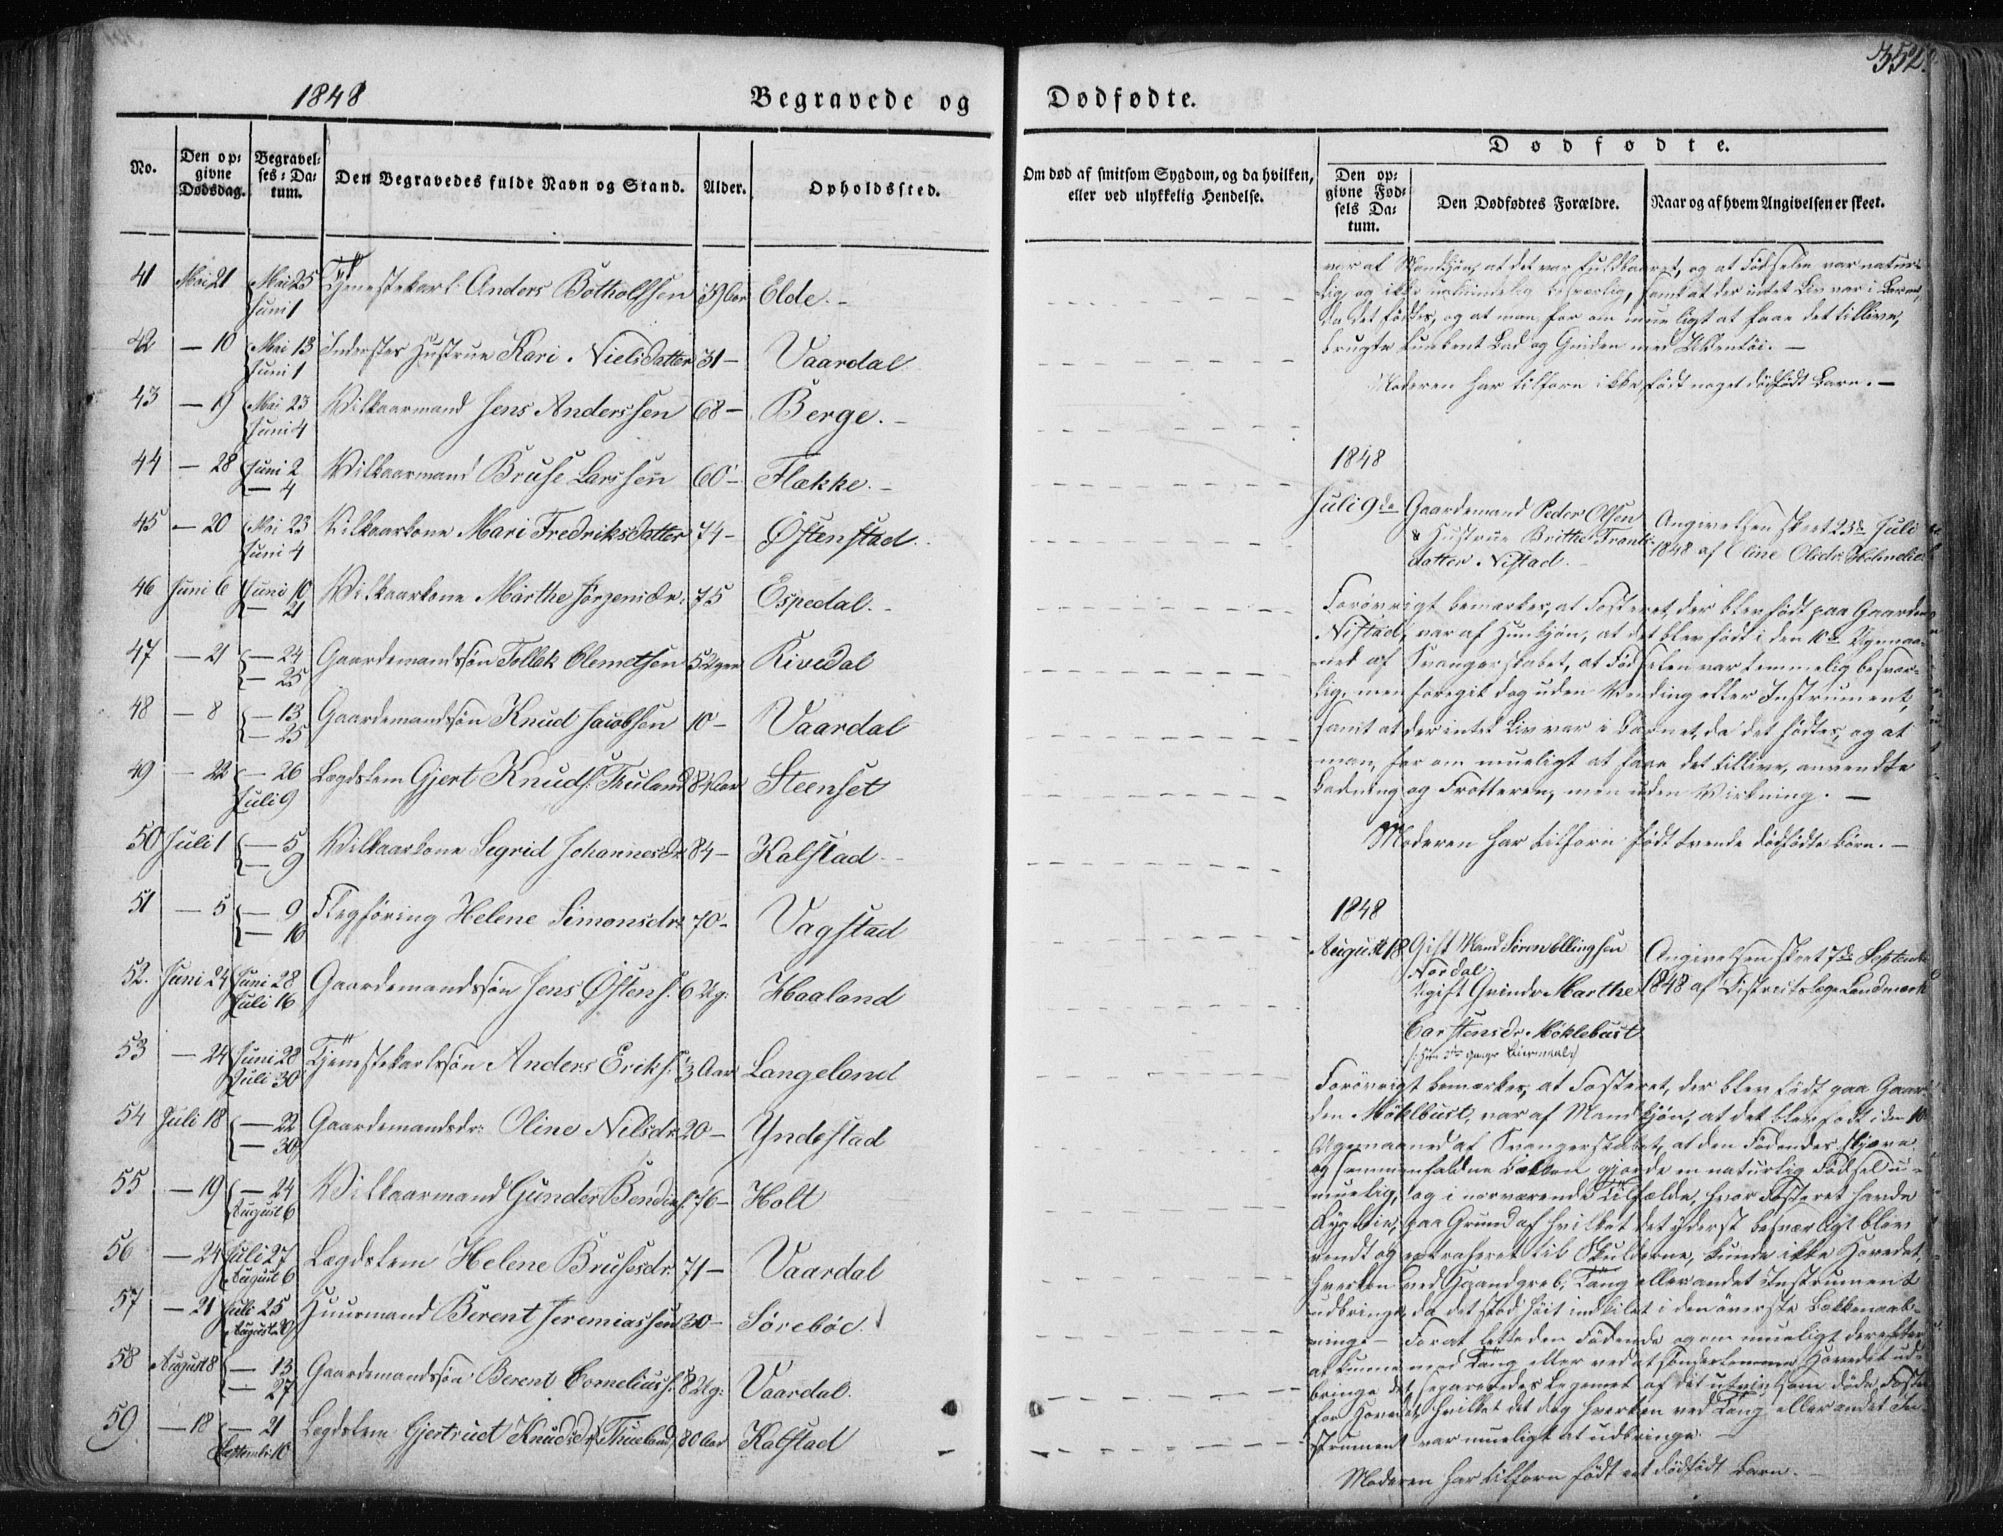 352.
1848
Begravede og Dødfødte.
No.
Den op-
givne
Dødsdag.
Begravel-
ses-Da-
tum.
Den Begravedes fulde Navn og Stand.
Alder.
Opholdssted.
Om død af smitsom Sygdom, og da hvilken,
eller ved ulykkelig Hendelse.
Dødfødte.
Den op-
givne Fød-
sels Da-
tum.
Den Dødfødtes Forældre.
Naar og af hvem Angivelsen er skeet.
41 Mai 21 Mai 25 Juni 1 Tjenestekarl Anders Botholfsen 39 Aar Elde.
42 — 10 Mai 13 Juni 1 Inderstes Hustrue Kari Nielsdatter 31 — Vaardal
43 — 19 Mai 23 Juni 4 Vilkaarmand Jens Anderssen 68 — Berge.
44 — 28 Juni 2 — 4 Vilkaarmand Bruse Larssen 60 — Flække.
45 — 20 Mai 23 Juni 4 Vilkaarkone Mari Fredriksdatter 74 — Østenstad.
46 Juni 6 Juni 10 — 21 Vilkaarkone Marthe Jørgensdr. 75 Espedal.
47 — 21 — 24 — 25 Gaardemandssøn Tollek Clemetsen 5 Uger Rivedal
48 — 8 — 13 — 25 Gaardemandssøn Knud Jacobsen 10 — Vaardal
49 — 22 — 26 Juli 9 Lægdslem Gjert Knuds. Thuland 84 Aar Steenset
50 Juli 1 — 5 — 9 Vilkaarkone Segrid Johannesdr. 84 — Kalstad.
51 — 5 — 9 — 16 Flegføring Helene Simonsdr. 70 — Vagstad
52. Juni 24 Juni 28 Juli 16 Gaardemandssøn Jens Østens. 6 Ug: Haaland
53 — 24 Juni 28 Juli 30 Tjenestekarlssøn Anders Eriks. 3 Aar Langeland
54 Juli 18 — 22 — 30 Gaardemandsdr: Oline Nilsdr. 20 — Yndestad
55 — 19 — 24 August 6 Vilkaarmand Gunder Bendixs. 76 — Holt
56 — 24 Juli 27 August 6 Lægdslem Helene Brusesdr. 71 — Vaardal
57 — 21 Juli 25 August Huurmand Berent Jeremiassen 30 — Sørebøe.
58 August 8 — 13 — 27 Gaardemandssøn Berent Cornelius s. 8 Ug: Vaardal.
59. — 18 — 21 Septembr. 10 Lægdslem Gjertrud Knudsdr. Thueland 80 Aar Kalstad
var af Mandkjøn, at det var fuldbaaret, og at Fødselen var natur-
lig, og ikke ualmindelig besværlig, samt at der intet Liv var i Barnet,
da det fødtes, og at man, for om mueligt at faae det tillive,
brugte lunkent Bad og Gniden med
Moderen har tilforn ikke født noget dødfødt Barn. —
1848
Juli 9de Gaardemand Peder Olsen
& Hustrue Brithe Frants-
datter Nistad.
Angivelsen skeet 23de Juli
1848 af Oline Olsdr.
Forøvrigt bemærkes, at Fosteret, der blev født paa Gaarden
Nistad, var af Hunkjøn, at det blev født i den 10de Ugemaa-
ned af Svangerskabet, at Fødselen var temmelig besvær-
lig, men foregik dog uden Vending eller Instrument,
samt at der intet Liv var i Barnet, da det fødtes, og at
man, for om mueligt at faae det tillive, anvendte
Badning og Frotteren, men uden Virkning. —
Moderen har tilforn født trende dødfødte Børn. —
1848
August 18 Gift Mand Søren Ellingsen
Nordal
Ugift Qvinde Marthe
Carstensdr. Møklebust
Angivelsen skeet 7de Septembr
1848 af Districtslæge Landmark
Forøvrigt bemærkes, at Fosteret, der blev født paa Gaar-
den Møklebust, var af Mandkjøn, at det blev født i den 10
Ugemaaned af Svangerskabet, at den Fødendes skjæve
og sammenfaldne Bækken gjorde en naturlig Fødsel u-
muelig, og i nærværende Tilfælde, hvor Fosteret havde
paa Grund af hvilket det yderst besværligt blev
vendt og extraheret til Skuldrene, kunde ikke Hovedet,
hverken ved Haandgreb, Tang eller andet Instrument
udbringes, da det stod høit indkilet i den øverste Bækkenaab-
ning. — For at lette den Fødende og om mueligt derefter
at kunne med Tang eller ved at sønderlemme Hovedet ud-
bringe det, separeredes Legemet af det utvivlsom døde Foster
fra Hovedet, hvilket det dog hverken ved Tang eller andet In-
strument var mueligt at udbringe. —
Moderen har tilforn født eet dødfødt Barn. —